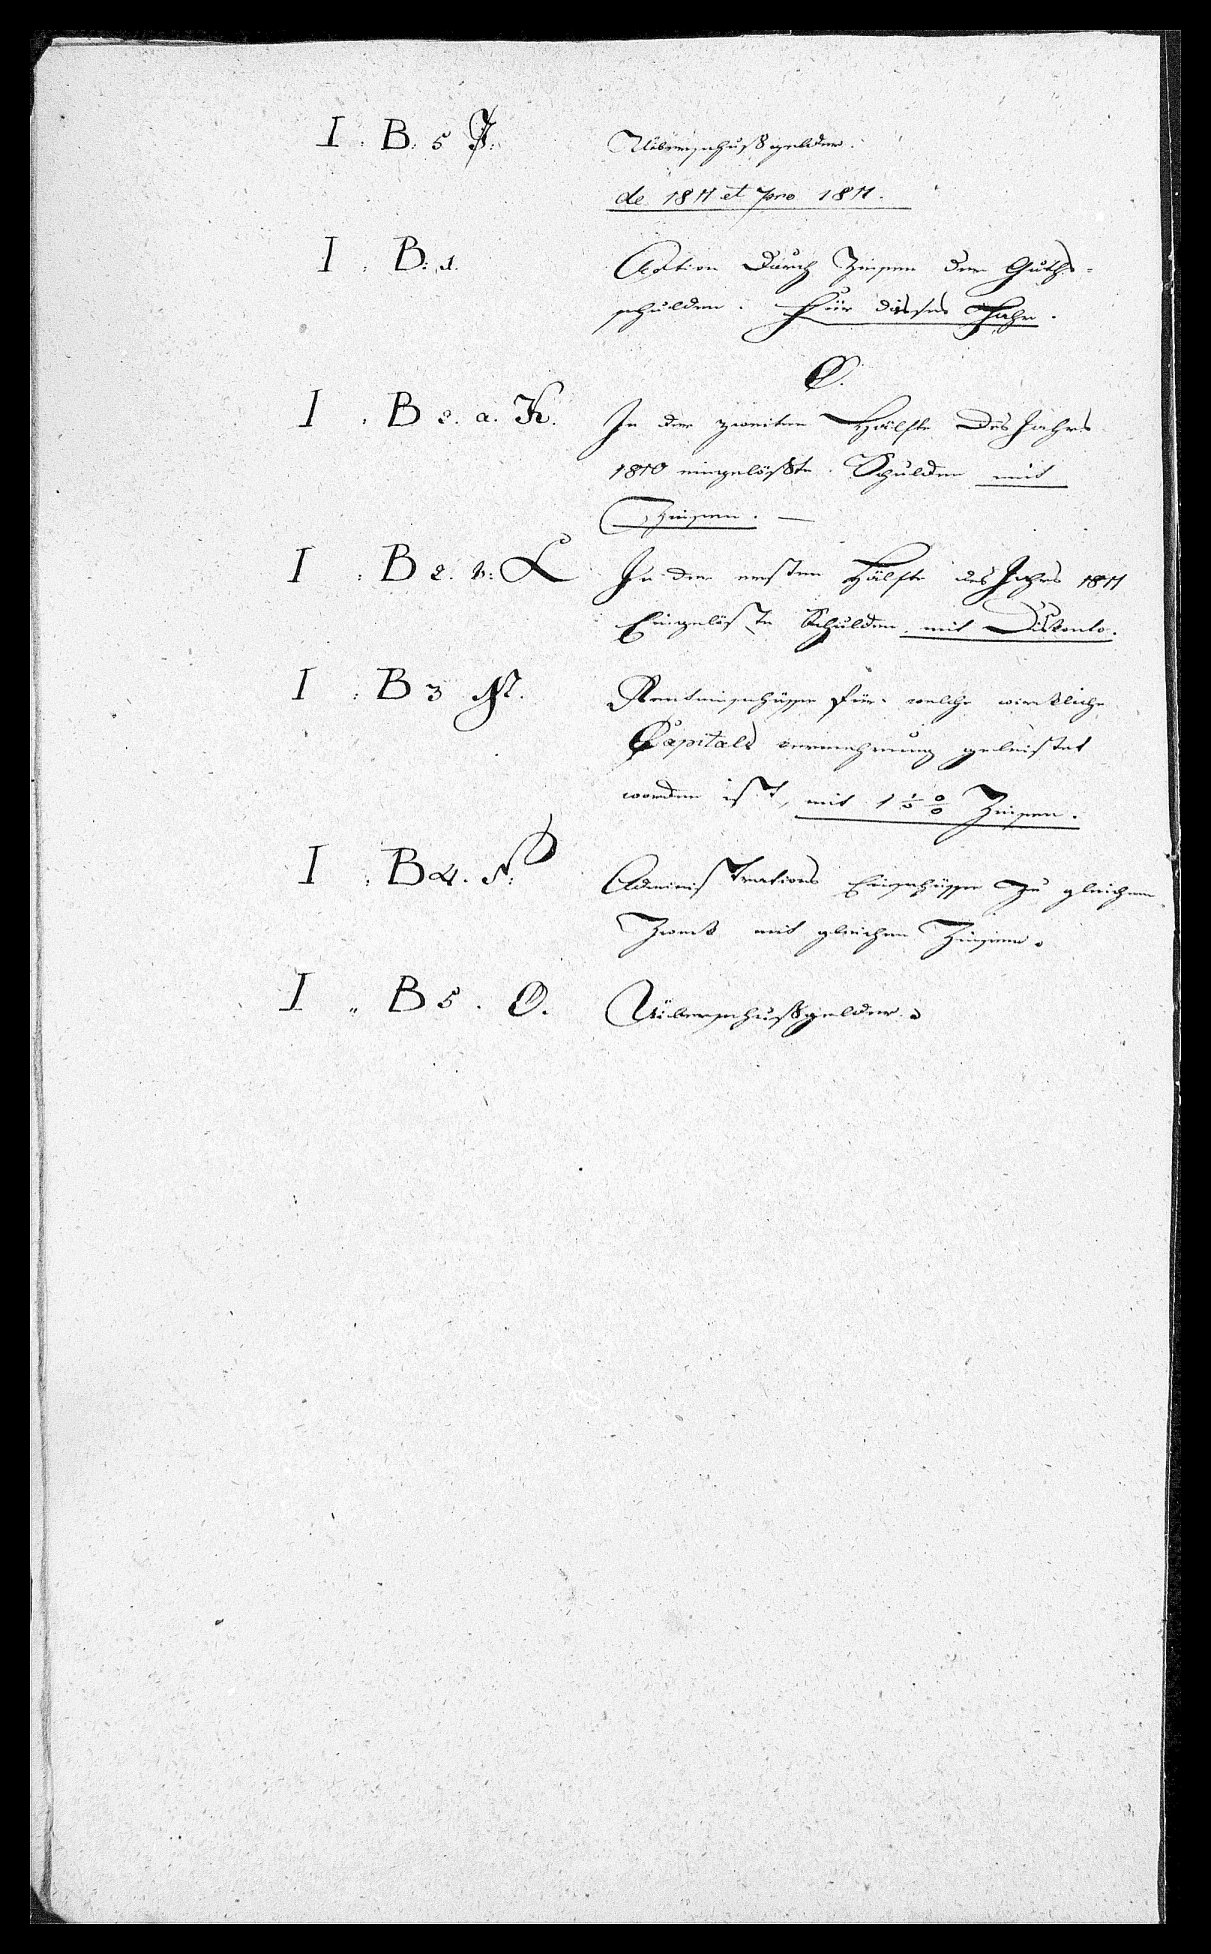 I. B. 5 J. Uiberschußgelder.
de 1811 et pro 1811.
I. B. 1. Aktion durch Zinsen der Guths-
schulden. Für dieses Jahr.
C.
I. B 2. a. K. In der zweiten Hälfte des Jahres
1810 eingelößte Schulden mit
Zinsen. —
I. B 2. b. L In der ersten Hälfte des Jahrs 1811
Eingelöste Schulden mit Diskonto.
I. B 3 M. Renteinschüsse für welche wirkliche
Capitals vermehrung geleistet
worden ist, mit 1 1/2 % Zinsen.
I. B 4. N. Administrations Einschüsse zu gleichem
Zwek mit gleichen Zinsen.
I. B 5. O. Uiberschußgelder.